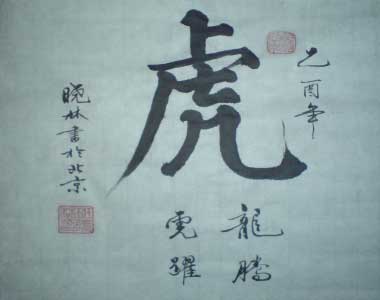 乙酉年
虎
龍騰
虎躍
晓林書於北京